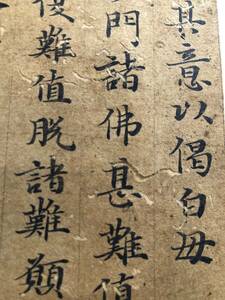 其意以偈白母
門諸佛甚難值
復難值脫諸難願